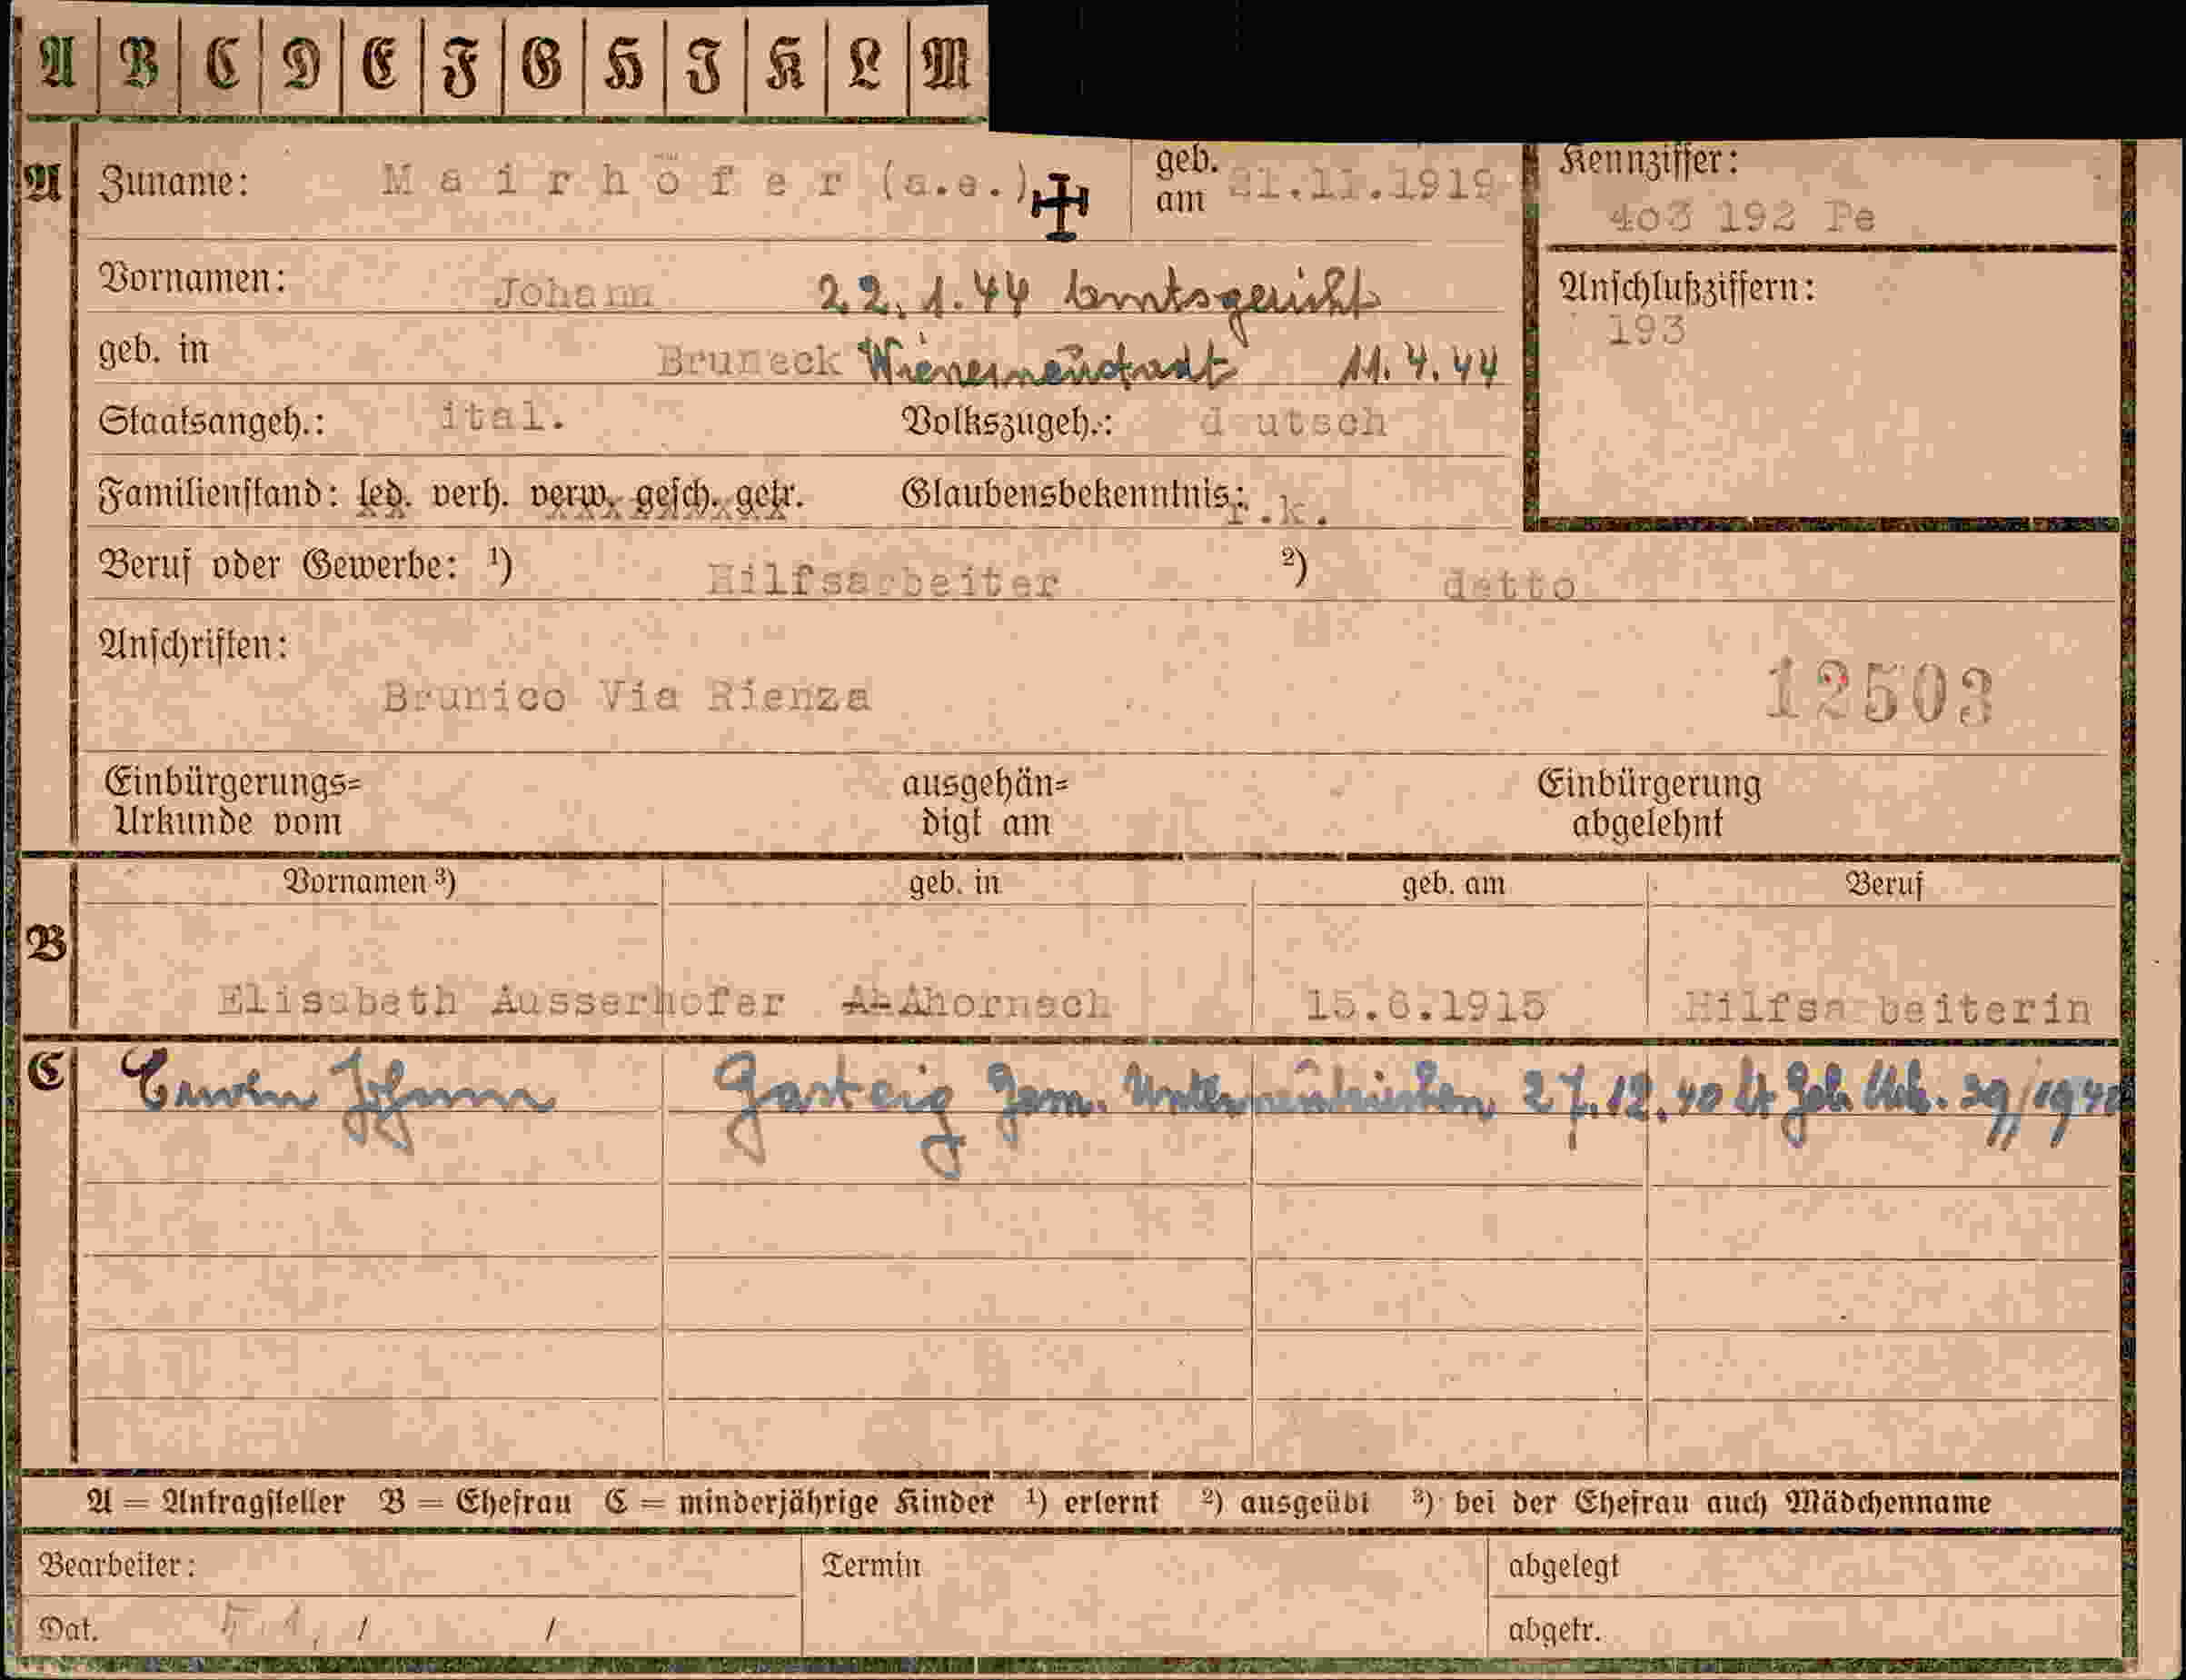 A B C D E F G H I K L M
A Zuname: Mairhöfer (a.e.) geb. am 21.11.1919 Kennziffer:
403 192 Pe
Vornamen: Johann 22.1.44 Amtsgericht Anschlußziffern:
193
geb. in Bruneck Wienerneustadt 11.4.44
Staatsangeh.: ital. Volkszugeh.: d utsch
Familienstand: led. verh. verw. gesch. getr. Glaubensbekenntnis: r.k.
Beruf oder Gewerbe: ¹) Hilfsarbeiter ²) detto
Anschriften:
Brunico Via Rienza 12503
Einbürgerungs= ausgehän= Einbürgerung
Urkunde vom digt am abgelehnt
Vornamen ³) geb. in geb. am Beruf
B
Elisabeth Ausserhofer A-Ahornach 15.6.1915 Hilfsarbeiterin
C Erwin Johann Gasteig Gem. 27.12.40 lt Geb. Urk. 39/1940
A = Antragsteller B = Ehefrau C = minderjährige Kinder ¹) erlernt ²) ausgeübt ³) bei der Ehefrau auch Mädchenname
Bearbeiter: Termin abgelegt
Dat. / / abgetr.